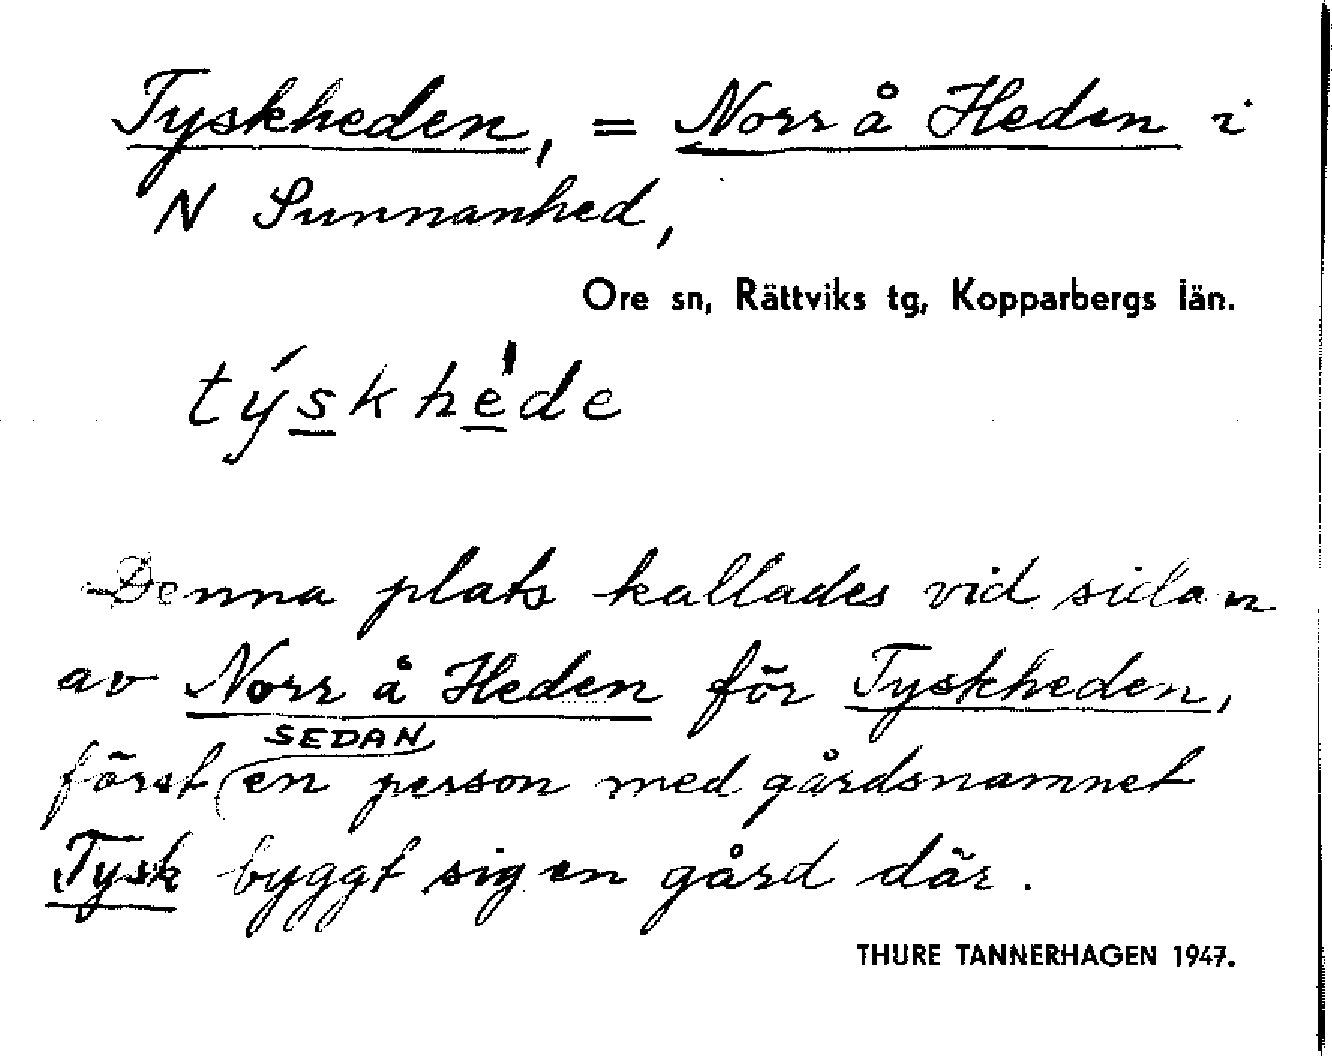 Tyskheden, = Norr å Heden i
N Sunnanhed,
Ore sn, Rättviks tg, Kopparbergs län.
týskhède
Denna plats kallades vid sidan
av Norr å Heden för Tyskheden,
först SEDAN en person med gårdsnamnet
Tysk byggt sig en gård där.
THURE TANNERHAGEN 1947.